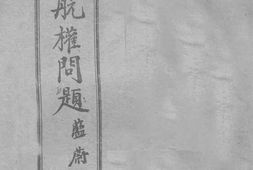 航權問題
藍蔚